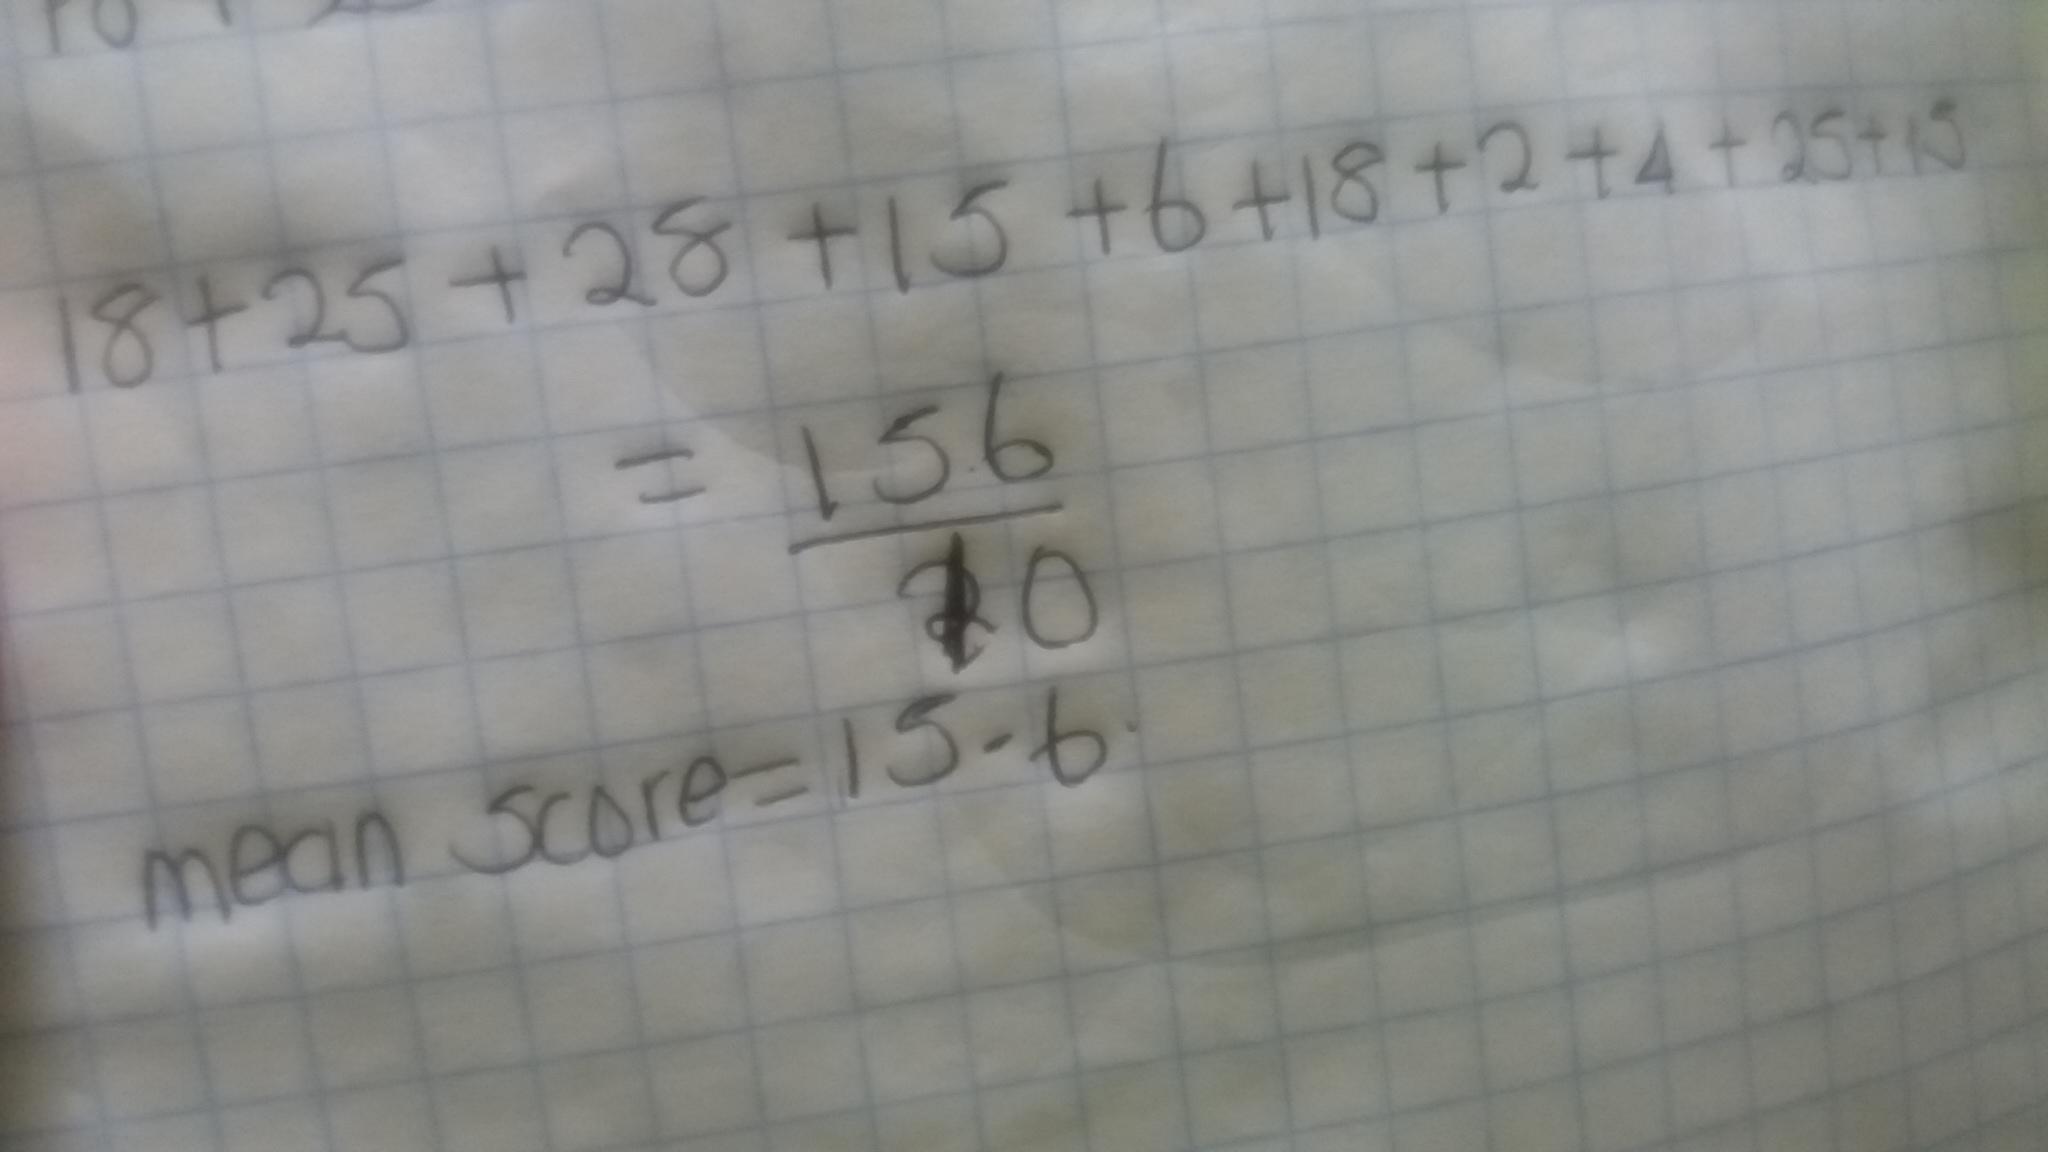 18+25+28+15+6+18+2+4+25+15
= 156
10
mean score=15.6